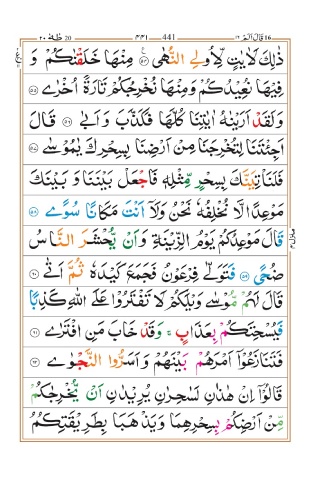 ١٦ قَالَ اَلَمۡ 441 ٤٤١ طٰهٰ 20 ٢٠
ذٰلِكَ لَاٰيٰتٍ لِّاُولِى النُّهٰى ۝٥٤ مِنۡهَا خَلَقۡنٰكُمۡ وَ
فِيۡهَا نُعِيۡدُكُمۡ وَمِنۡهَا نُخۡرِجُكُمۡ تَارَةً اُخۡرٰى ۝٥٥
وَلَقَدۡ اَرَيۡنٰهُ اٰيٰتِنَا كُلَّهَا فَكَذَّبَ وَاَبٰى ۝٥٦ قَالَ
اَجِئۡتَنَا لِتُخۡرِجَنَا مِنۡ اَرۡضِنَا بِسِحۡرِكَ يٰمُوۡسٰى ۝٥٧
فَلَنَاۡتِيَنَّكَ بِسِحۡرٍ مِّثۡلِهٖ فَاجۡعَلۡ بَيۡنَنَا وَبَيۡنَكَ
مَوۡعِدًا لَّا نُخۡلِفُهٗ نَحۡنُ وَلَاۤ اَنۡتَ مَكَانًا سُوًى ۝٥٨
قَالَ مَوۡعِدُكُمۡ يَوۡمُ الزِّيۡنَةِ وَاَنۡ يُّحۡشَرَ النَّاسُ
ضُحًى ۝٥٩ فَتَوَلّٰى فِرۡعَوۡنُ فَجَمَعَ كَيۡدَهٗ ثُمَّ اَتٰى ۝٦٠
قَالَ لَهُمۡ مُّوۡسٰى وَيۡلَكُمۡ لَا تَفۡتَرُوۡا عَلَى اللّٰهِ كَذِبًا
فَيُسۡحِتَكُمۡ بِعَذَابٍ ۚ وَقَدۡ خَابَ مَنِ افۡتَرٰى ۝٦١
فَتَنَازَعُوۡۤا اَمۡرَهُمۡ بَيۡنَهُمۡ وَاَسَرُّوا النَّجۡوٰى ۝٦٢
قَالُوۡۤا اِنۡ هٰذٰنِ لَسٰحِرٰنِ يُرِيۡدٰنِ اَنۡ يُّخۡرِجٰكُمۡ
مِّنۡ اَرۡضِكُمۡ بِسِحۡرِهِمَا وَيَذۡهَبَا بِطَرِيۡقَتِكُمُ